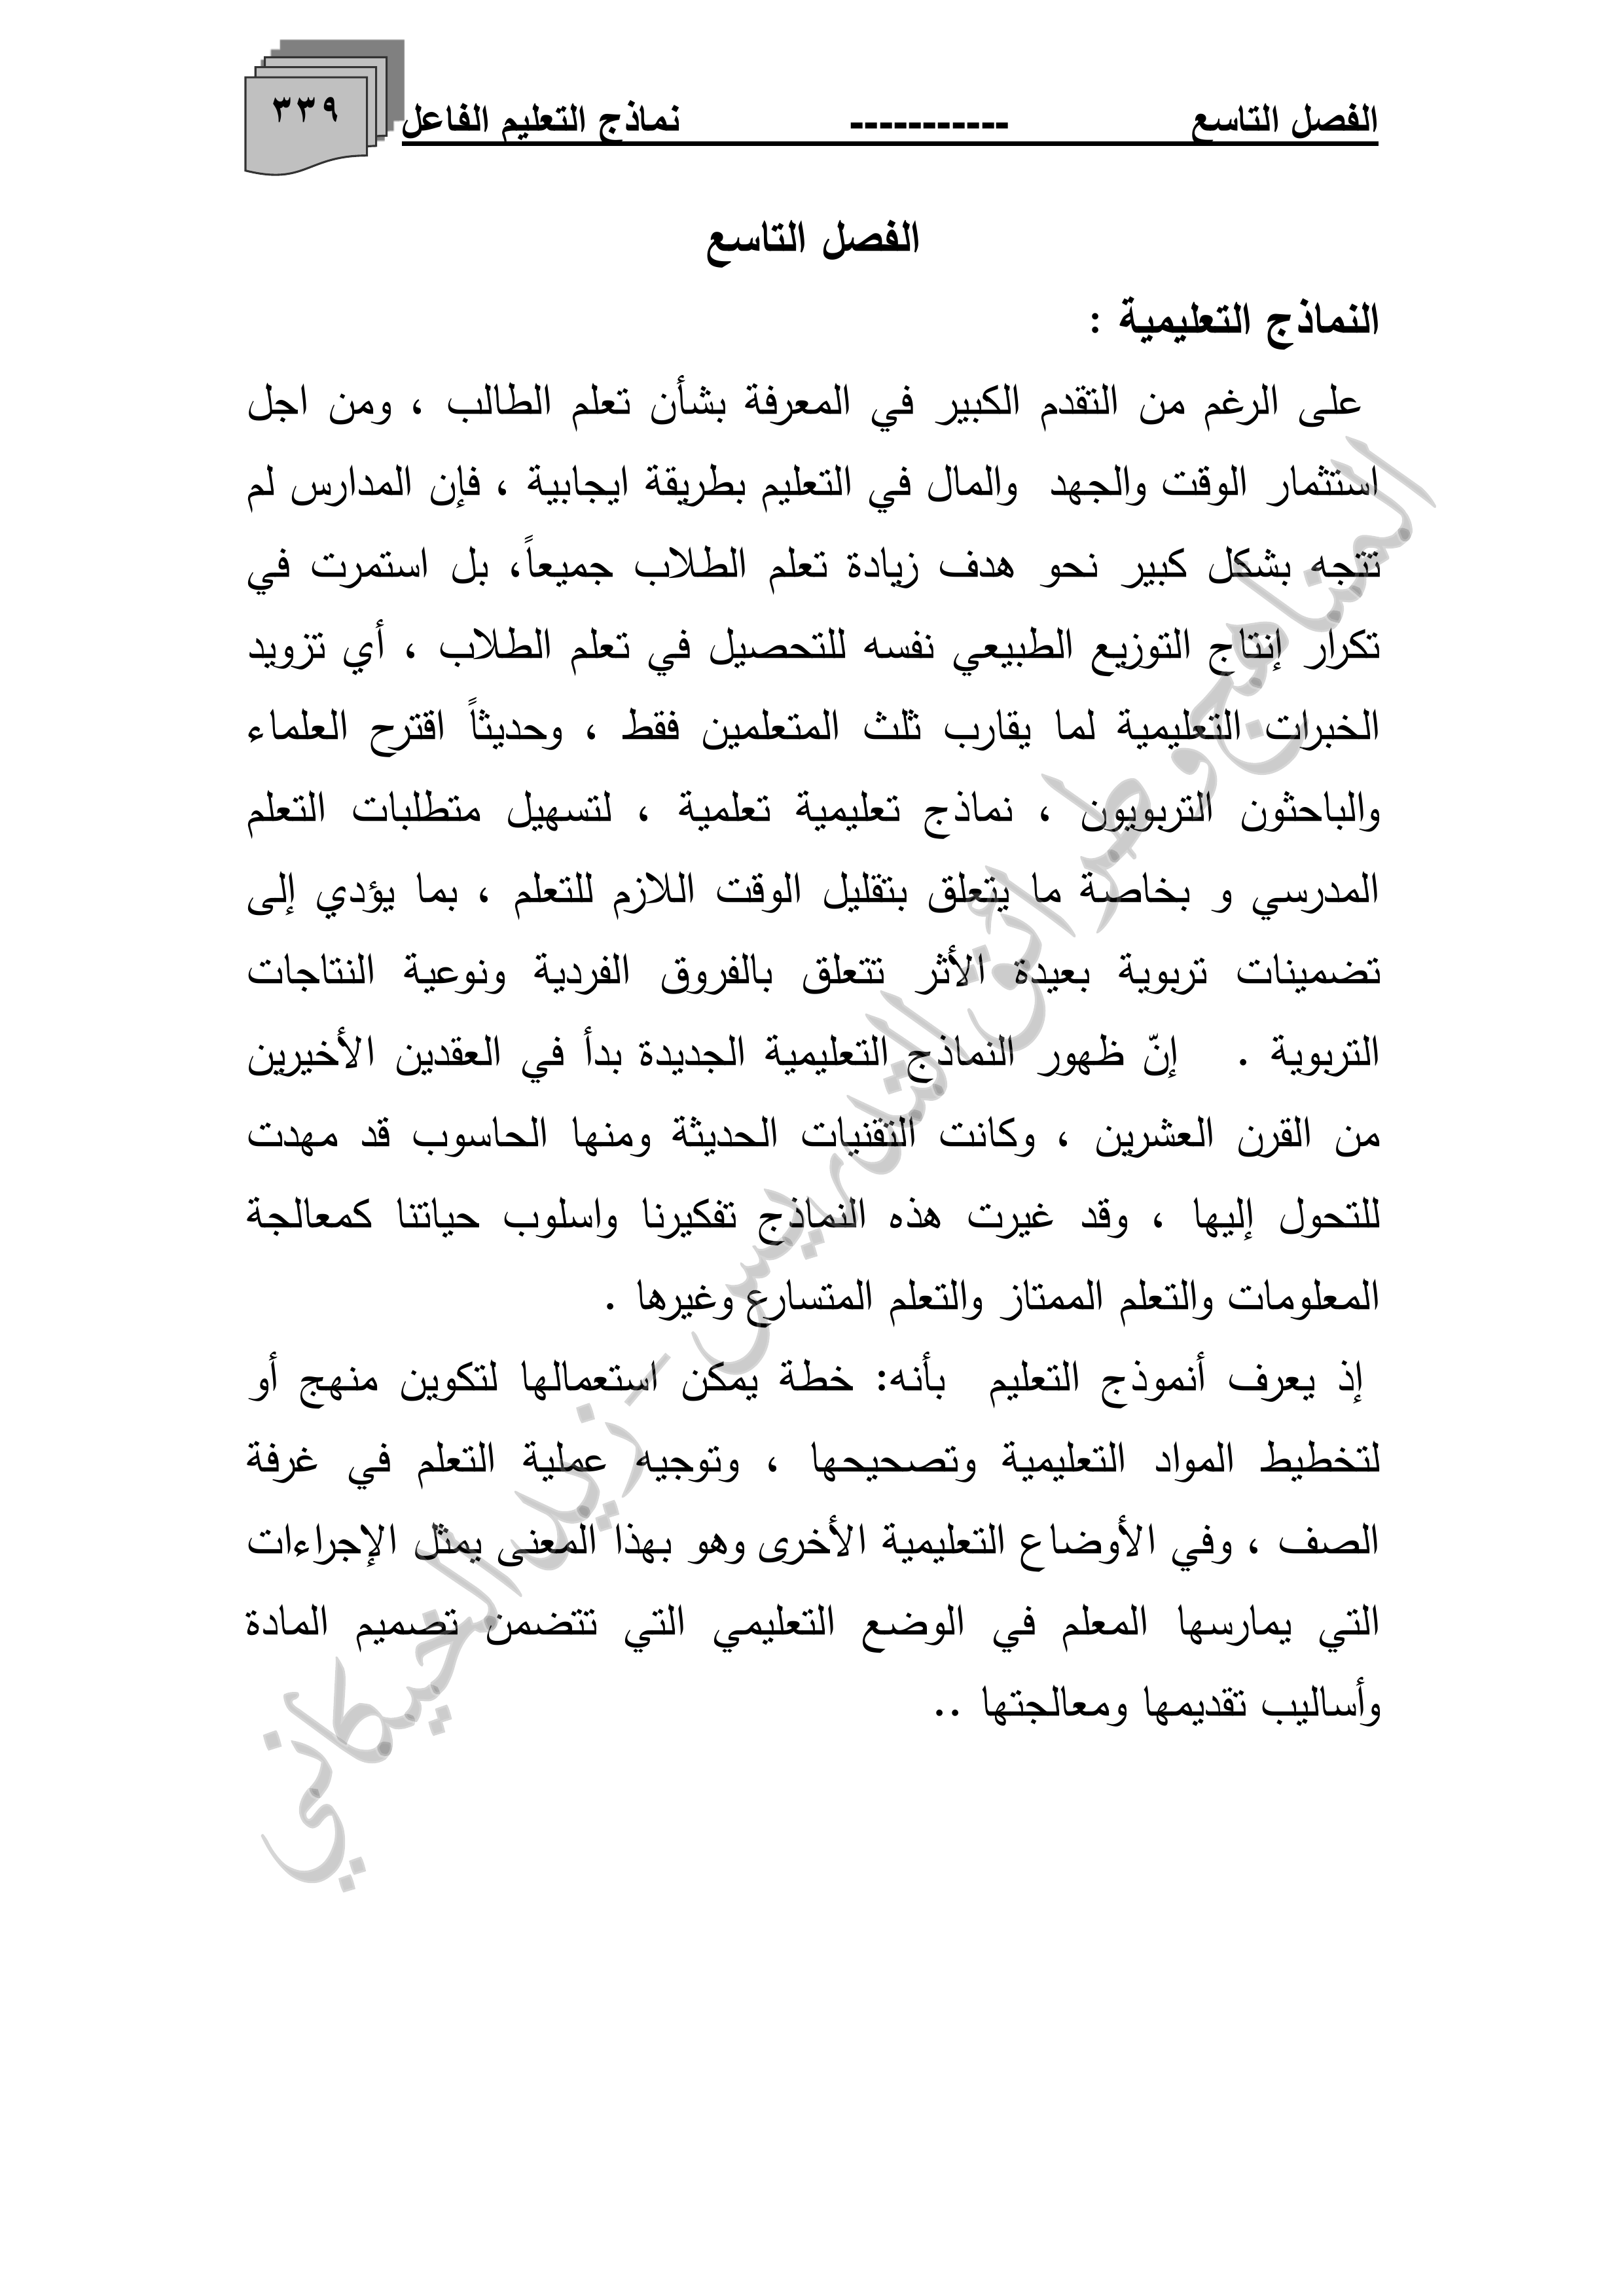 الفصل التاسع ----------- نماذج التعليم الفاعل
٣٣٩
الفصل التاسع
النماذج التعليمية :
على الرغم من التقدم الكبير في المعرفة بشأن تعلم الطالب ، ومن اجل
استثمار الوقت والجهد والمال في التعليم بطريقة ايجابية ، فإن المدارس لم
تتجه بشكل كبير نحو هدف زيادة تعلم الطلاب جميعاً، بل استمرت في
تكرار إنتاج التوزيع الطبيعي نفسه للتحصيل في تعلم الطلاب ، أي تزويد
الخبرات التعليمية لما يقارب ثلث المتعلمين فقط ، وحديثاً اقترح العلماء
والباحثون التربويون ، نماذج تعليمية تعلمية ، لتسهيل متطلبات التعلم
المدرسي و بخاصة ما يتعلق بتقليل الوقت اللازم للتعلم ، بما يؤدي إلى
تضمينات تربوية بعيدة الأثر تتعلق بالفروق الفردية ونوعية النتاجات
التربوية . إنّ ظهور النماذج التعليمية الجديدة بدأ في العقدين الأخيرين
من القرن العشرين ، وكانت التقنيات الحديثة ومنها الحاسوب قد مهدت
للتحول إليها ، وقد غيرت هذه النماذج تفكيرنا واسلوب حياتنا كمعالجة
المعلومات والتعلم الممتاز والتعلم المتسارع وغيرها .
إذ يعرف أنموذج التعليم بأنه: خطة يمكن استعمالها لتكوين منهج أو
لتخطيط المواد التعليمية وتصحيحها ، وتوجيه عملية التعلم في غرفة
الصف ، وفي الأوضاع التعليمية الأخرى وهو بهذا المعنى يمثل الإجراءات
التي يمارسها المعلم في الوضع التعليمي التي تتضمن تصميم المادة
وأساليب تقديمها ومعالجتها ..
المناهج وطرائق التدريس - زيد الخيكاني